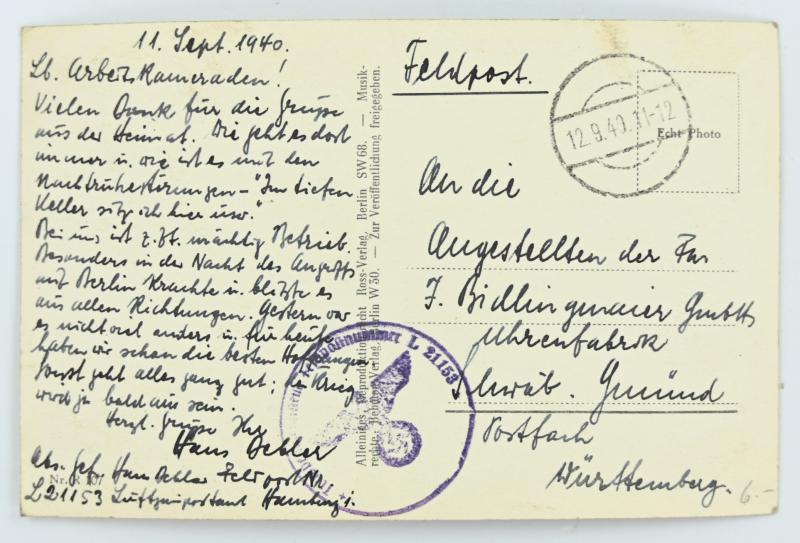 11. Sept. 1940.
Lb. Arbeitskameraden!
Vielen Dank für die Grüße
aus der Heimat. Wie geht es dort
immer u. wie ist es mit den
Nachtruhestörungen – "Im tiefen
Keller sitz ich hier usw."
Bei uns ist z. Zt. mächtig Betrieb.
Besonders in der Nacht des Angriffs
auf Berlin krachte u. blitzte es
aus allen Richtungen. Gestern war
es nicht viel anders u. für heute
haben wir schon die besten Hoffnungen
Sonst geht alles ganz gut; der Krieg
wird ja bald aus sein.
Herzl. Grüße Ihr
Hans Oehler
Abs. Gefr. Hans Oehler Feldpost Nr.
L 21153 Luftgaupostamt Hamburg 1.
Nr. R 107
Alleiniges Reproduktionsrecht Ross-Verlag, Berlin SW 68. — Musik-
rechte: Beboton-Verlag, Berlin W 50. — Zur Veröffentlichung freigegeben.
Feldpostnummer L 21153
Feldpost.
12.9.40.11-12
Echt Photo
An die
Angestellten der Fa
J. Bidlingmaier GmbH
Uhrenfabrik
Schwäb. Gmünd
Postfach
Württemberg.
6.-